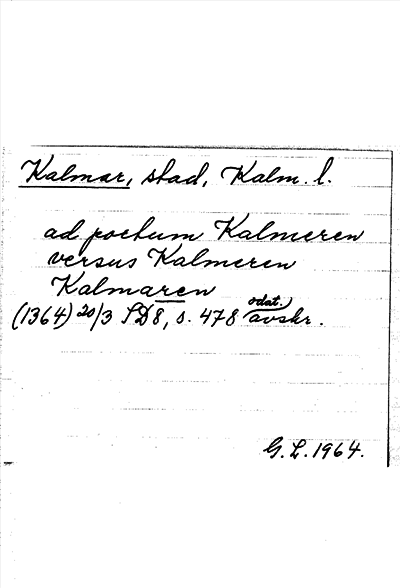 Kalmar, stad, Kalm. l.
ad portum Kalmeren
versus Kalmeren
Kalmaren
(1364) 20/3 SD8, s. 478 odat.) avskr.
G. L. 1964.